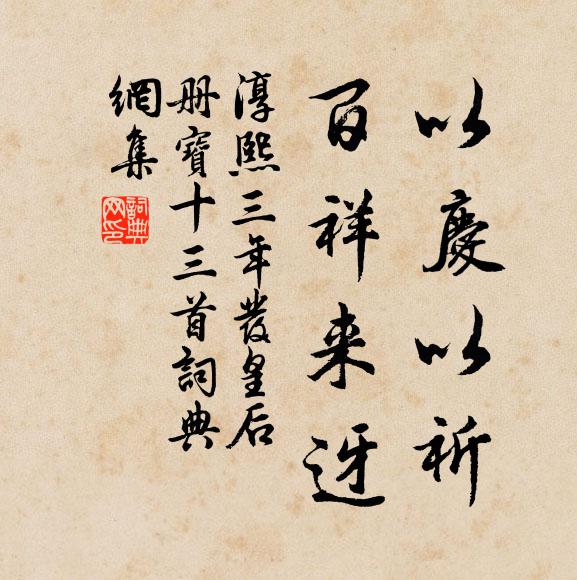 以慶以祈
百祥来迓
淳熙三年發皇后
册寶十三首詞典
網集
詞典網印